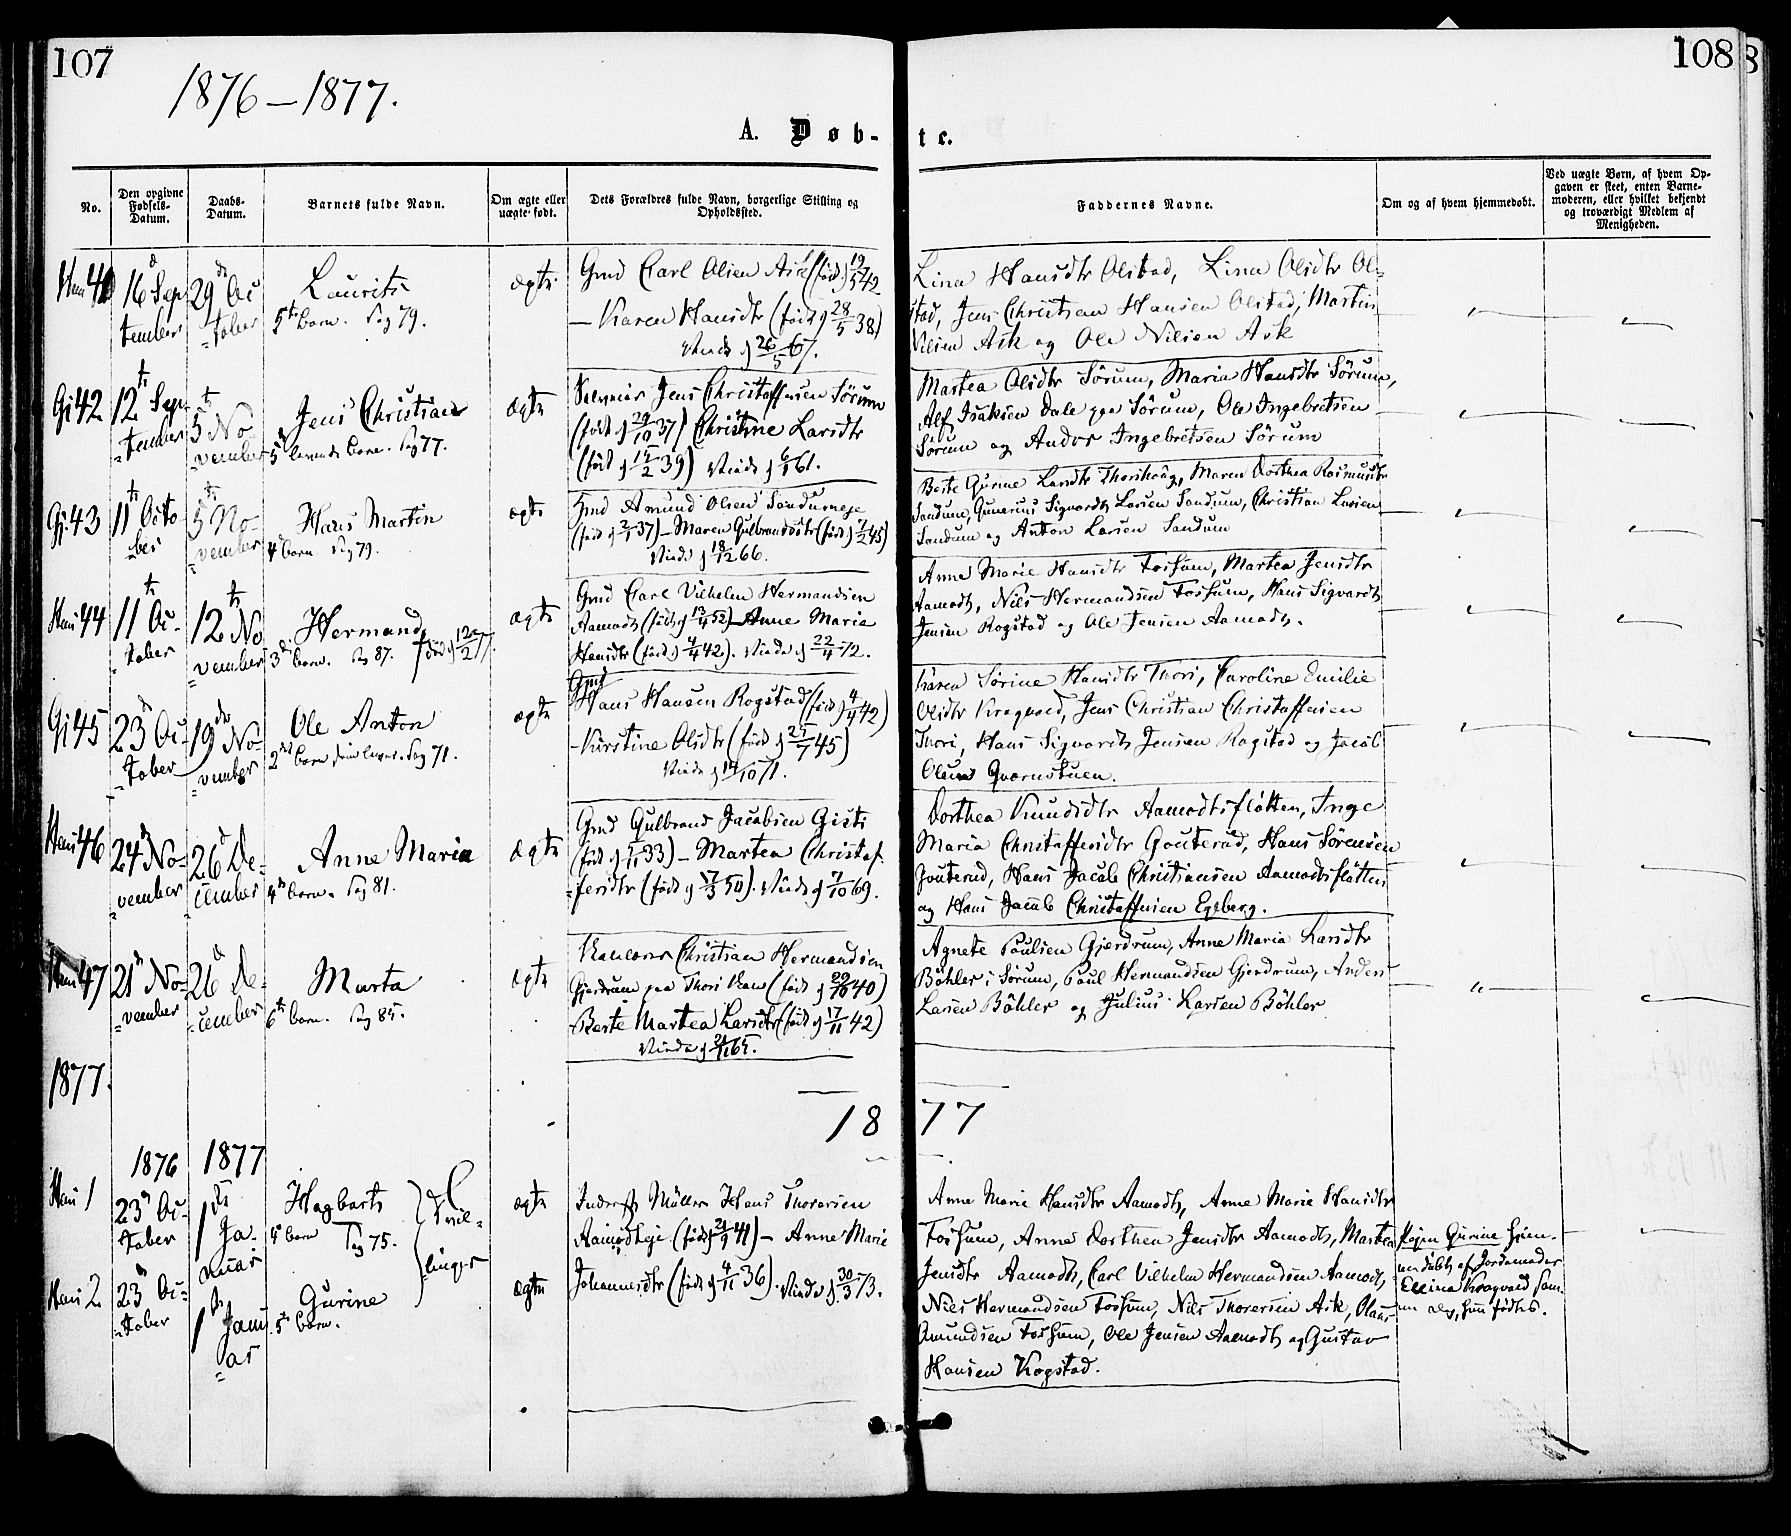 107
108
1876 – 1877.
A. Døb-
te.
No.
Den opgivne Fødsels-Datum.
Daabs-Datum.
Barnets fulde Navn.
Om ægte eller uægte født.
Dets Forældres fulde Navn, borgerlige Stilling og Opholdssted.
Faddernes Navne.
Om og af hvem hjemmedøbt.
Ved uægte Børn, af hvem Opgaven er skeet, enten Barnemoderen, eller hvilket bekjendt og troværdigt Medlem af Menigheden.
16 Sep
tember
29 Oc
tober
Laurits
5te barn. Pag 79.
ægte
Gmd Carl Olsen Ask (født 19/5 42
– Karen Hansdtr (født d 28/5 38)
Viede d 26/5 67.
Lina Hansdtr Olstad, Lina Olsdtr Ol=
stad, Jens Christian Hansen Olstad, Martin
Nilsen Ask og Ole Nilsen Ask
Gj 42
12 Sep
tember
5 No
vember
Jens Christian
5 levende barn. Pag 77.
ægte
Jens Christoffersen Sörum
(født d 29/10 37) Christine Larsdtr
(født d 39) Viede d 61.
Martea Olsdtr Sörum, Maria Hansdtr Sörum,
Alf Isaksen Dale paa Sörum, Ole Ingebretsen
Sörum og Anders Ingebretsen Sörum
Gj 43
11 Octo
ber
5 No-
vember
Hans Martin
4 barn Pag 79.
ægte
Gmd Amund Olsen Sandumeje
(født d 2/1 37) – Maren Gulbrandsdtr (født d 45)
Viede d 18/12 66.
Berte Gurine Larsdtr Maren Dorthea Rasmusdtr
Sandum, Gunerius Sigvardts Larsen Sandum, Christian Larsen
Sandum og Anton Larsen Sandum
44
11 Oc-
tober
12 No
vember
Hermand
3die barn. Pag 87.
ægte
Gmd Carl Vilhelm Hermandsen
Aamodt (født d 13/4 52) – Anne Maria
Hansdtr (født d 4/4 42). Viede d 22/4 72.
Anne Marie Hansdtr Fosshum, Martea Jensdtr
Aamodt, Nils Hermandsen Fosshum, Hans Sigvardt
Jensen Rogstad og Ole Jensen Aamodt.
Gj 45
23 Oc-
tober
19 No-
vember
Ole Anton
2det barn som lever. Pag 71.
ægte
Gmd
Hans Hansen Rogstad (født d 4/4 42)
– Kirstine Olsdtr (født d 45)
Viede d 14/10 71.
Karen Sörine Hansdtr Thori, Caroline Emilie
Olsdtr Kragvoed, Jens Christian Christoffersen
Thori, Hans Sigvardt Jensen Rogstad og Jacob
Olsen Qvernstuen.
46
24 No-
vember
26 De-
cember
Anne Maria
4de barn. Pag 81.
ægte
Gmd Gulbrand Jacobsen
(født d 33) – Martea Christof-
fersdtr (født d 17/3 50). Viede d 7/10 69.
Dorthea Knudsdtr Aamodtsflötten, Inge
Maria Christoffersdtr Gouterud, Hans Sörensen
Gouterud, Hans Jacob Christiansen Aamodtsflötten
og Hans Jacob Christoffersen Egeberg.
47
21 No-
vember
26 De-
cember
Marta
6te barn. Pag 85.
ægte
Christian Hermandsen
Gjerdrum paa Thori (født d 29/10 40)
Berte Martea Larsdtr (født d 17/11 42)
Viede d 65.
Agnete Paulsen Gjerdrum, Anne Maria Larsdtr
Böhler i Sörum, Paul Hermandsen Gjerdrum, Anders
Larsen Böhler og Julius Larsen Böhler
1877.
1877
1876
1877
1
23 Oc-
tober
1 Ja-
nuar
Hagbart
4 barn Pag 75.
Tvil-
linger
ægte
Müller Hans Thoresen
Aamodteje (født d 41) – Anne Marie
Johannesdtr (født d 4/11 36). Viede d 30/3 73.
Anne Marie Hansdtr Aamodt, Anne Marie Hansdtr
Fosshum, Anna Dorthea Jensdtr Aamodt, Martea
Jensdtr Aamodt, Carl Vilhelm Hermandsen Aamodt,
Nils Hermandsen Fosshum, Nils Thoresen Ask, Olaus
Amundsen Fosshum, Ole Jensen Aamodt og Gustav
Hansen Rogstad.
Pigen Gurine hjem-
medöbt af Jordemoder
Elina Kragvoed sam-
me dag, hun födtes.
2
23 Oc-
tober
1 Janu-
ar
Gurine
5te barn.
ægte